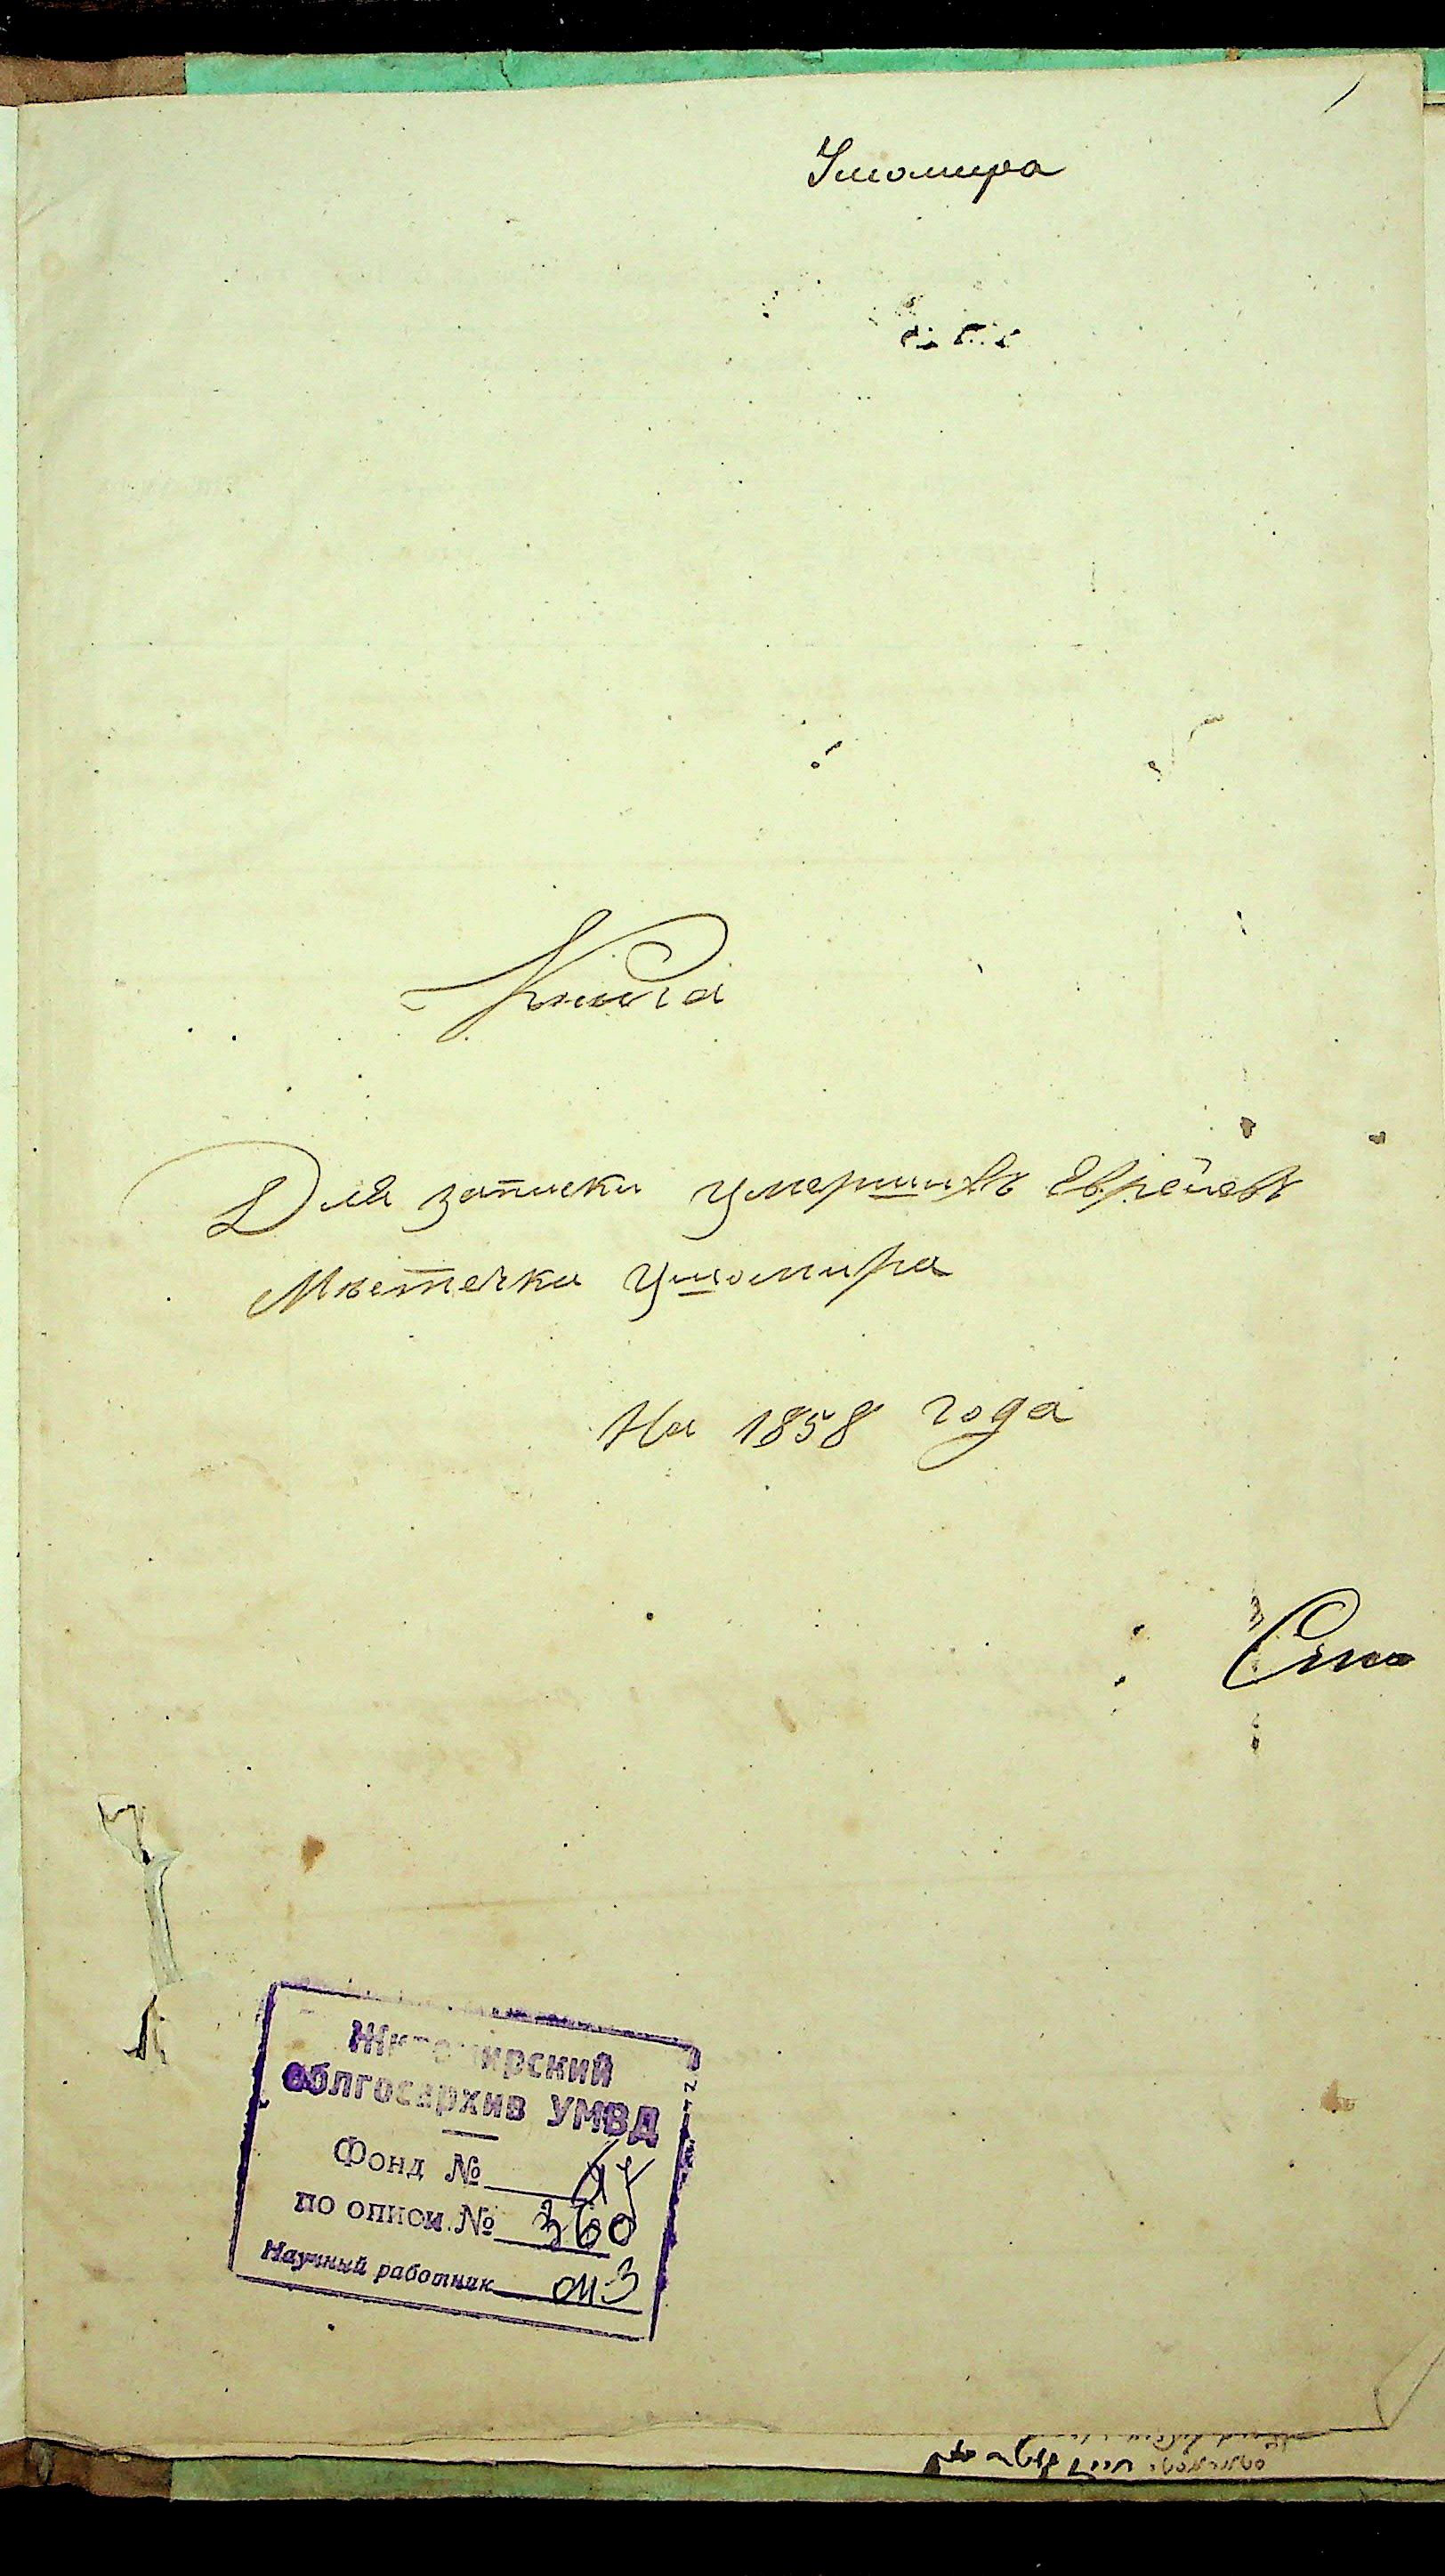 Ушомира
Книга
Для записки умершихъ Евреевъ
Мѣстечка Ушомира
На 1858 года
Житомирский
облгосархив УМВД
Фонд № 67
по описи № 360
Научный работник